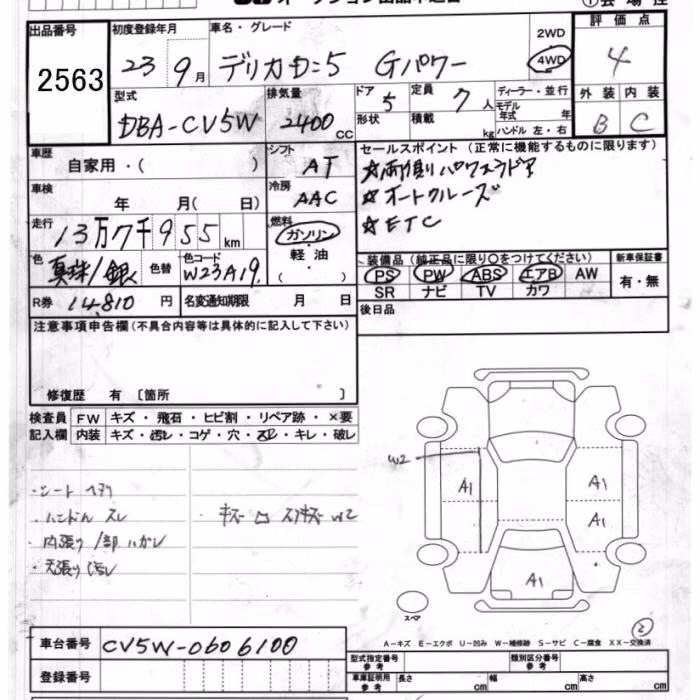 出品番号 初度登録年月 車名・グレード 2WD 評価点
2563 23 9月 デリカD:5 Gパワー 4WD 4
型式 排気量 ドア 5 定員 7人 ディーラー・並行 外装 内装
DBA-CV5W 2400cc 形状 積載 kg モデル年式 年 ハンドル 左・右 B C
車歴 シフト セールスポイント (正常に機能するものに限ります)
自家用・( ) AT ☆両側パワスラドア
車検 冷房 ☆オートクルーズ
年 月( 日) AAC ☆ETC
走行 13万7千955km 燃料 ガソリン
軽油
( )
装備品(純正品に限り○をつけてください) 新車保証書
色 真珠/銀 色替 色コード W23A19 PS PW ABS エアB AW 有・無
SR ナビ TV カワ
R券 14,810円 名変通知期限 月 日 後日品
注意事項申告欄(不具合内容等は具体的に記入して下さい)
修復歴 有 〔箇所 〕
検査員 FW キズ・飛石・ヒビ割・リペア跡・×要
記入欄 内装 キズ・汚レ・コゲ・穴・スレ・キレ・破レ
W2
A1 A1
・シート ヘタリ
・ハンドル スレ ・キズ 凹 スリキズ W2 A1
・内張り 1部ハガレ
・天張り汚レ A1
スペア
②
A-キズ E-エクボ U-凹み W-補修跡 S-サビ C-腐食 XX-交換済
車台番号 CV5W-0606100
型式指定番号 参考 類別区分番号 参考
登録番号 車庫証明用 参考 長さ cm 幅 cm 高さ cm